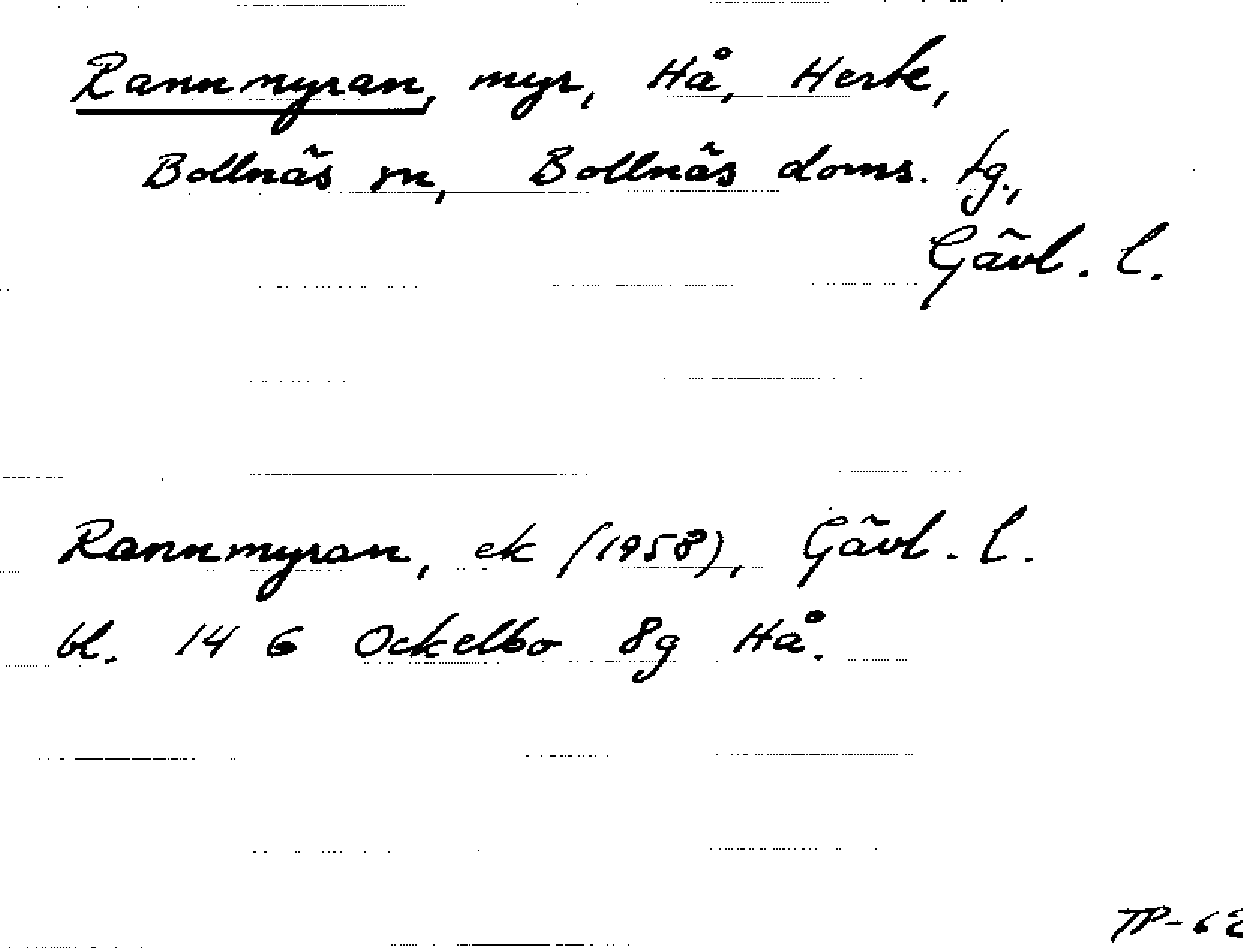 Rannmyran, myr, Hå, Herte,
Bollnäs sn, Bollnäs doms. tg.,
Gävl. l.
Rannmyran, ek (1958), Gävl. l.
bl. 14 G Ockelbo 8g Hå.
TP-62